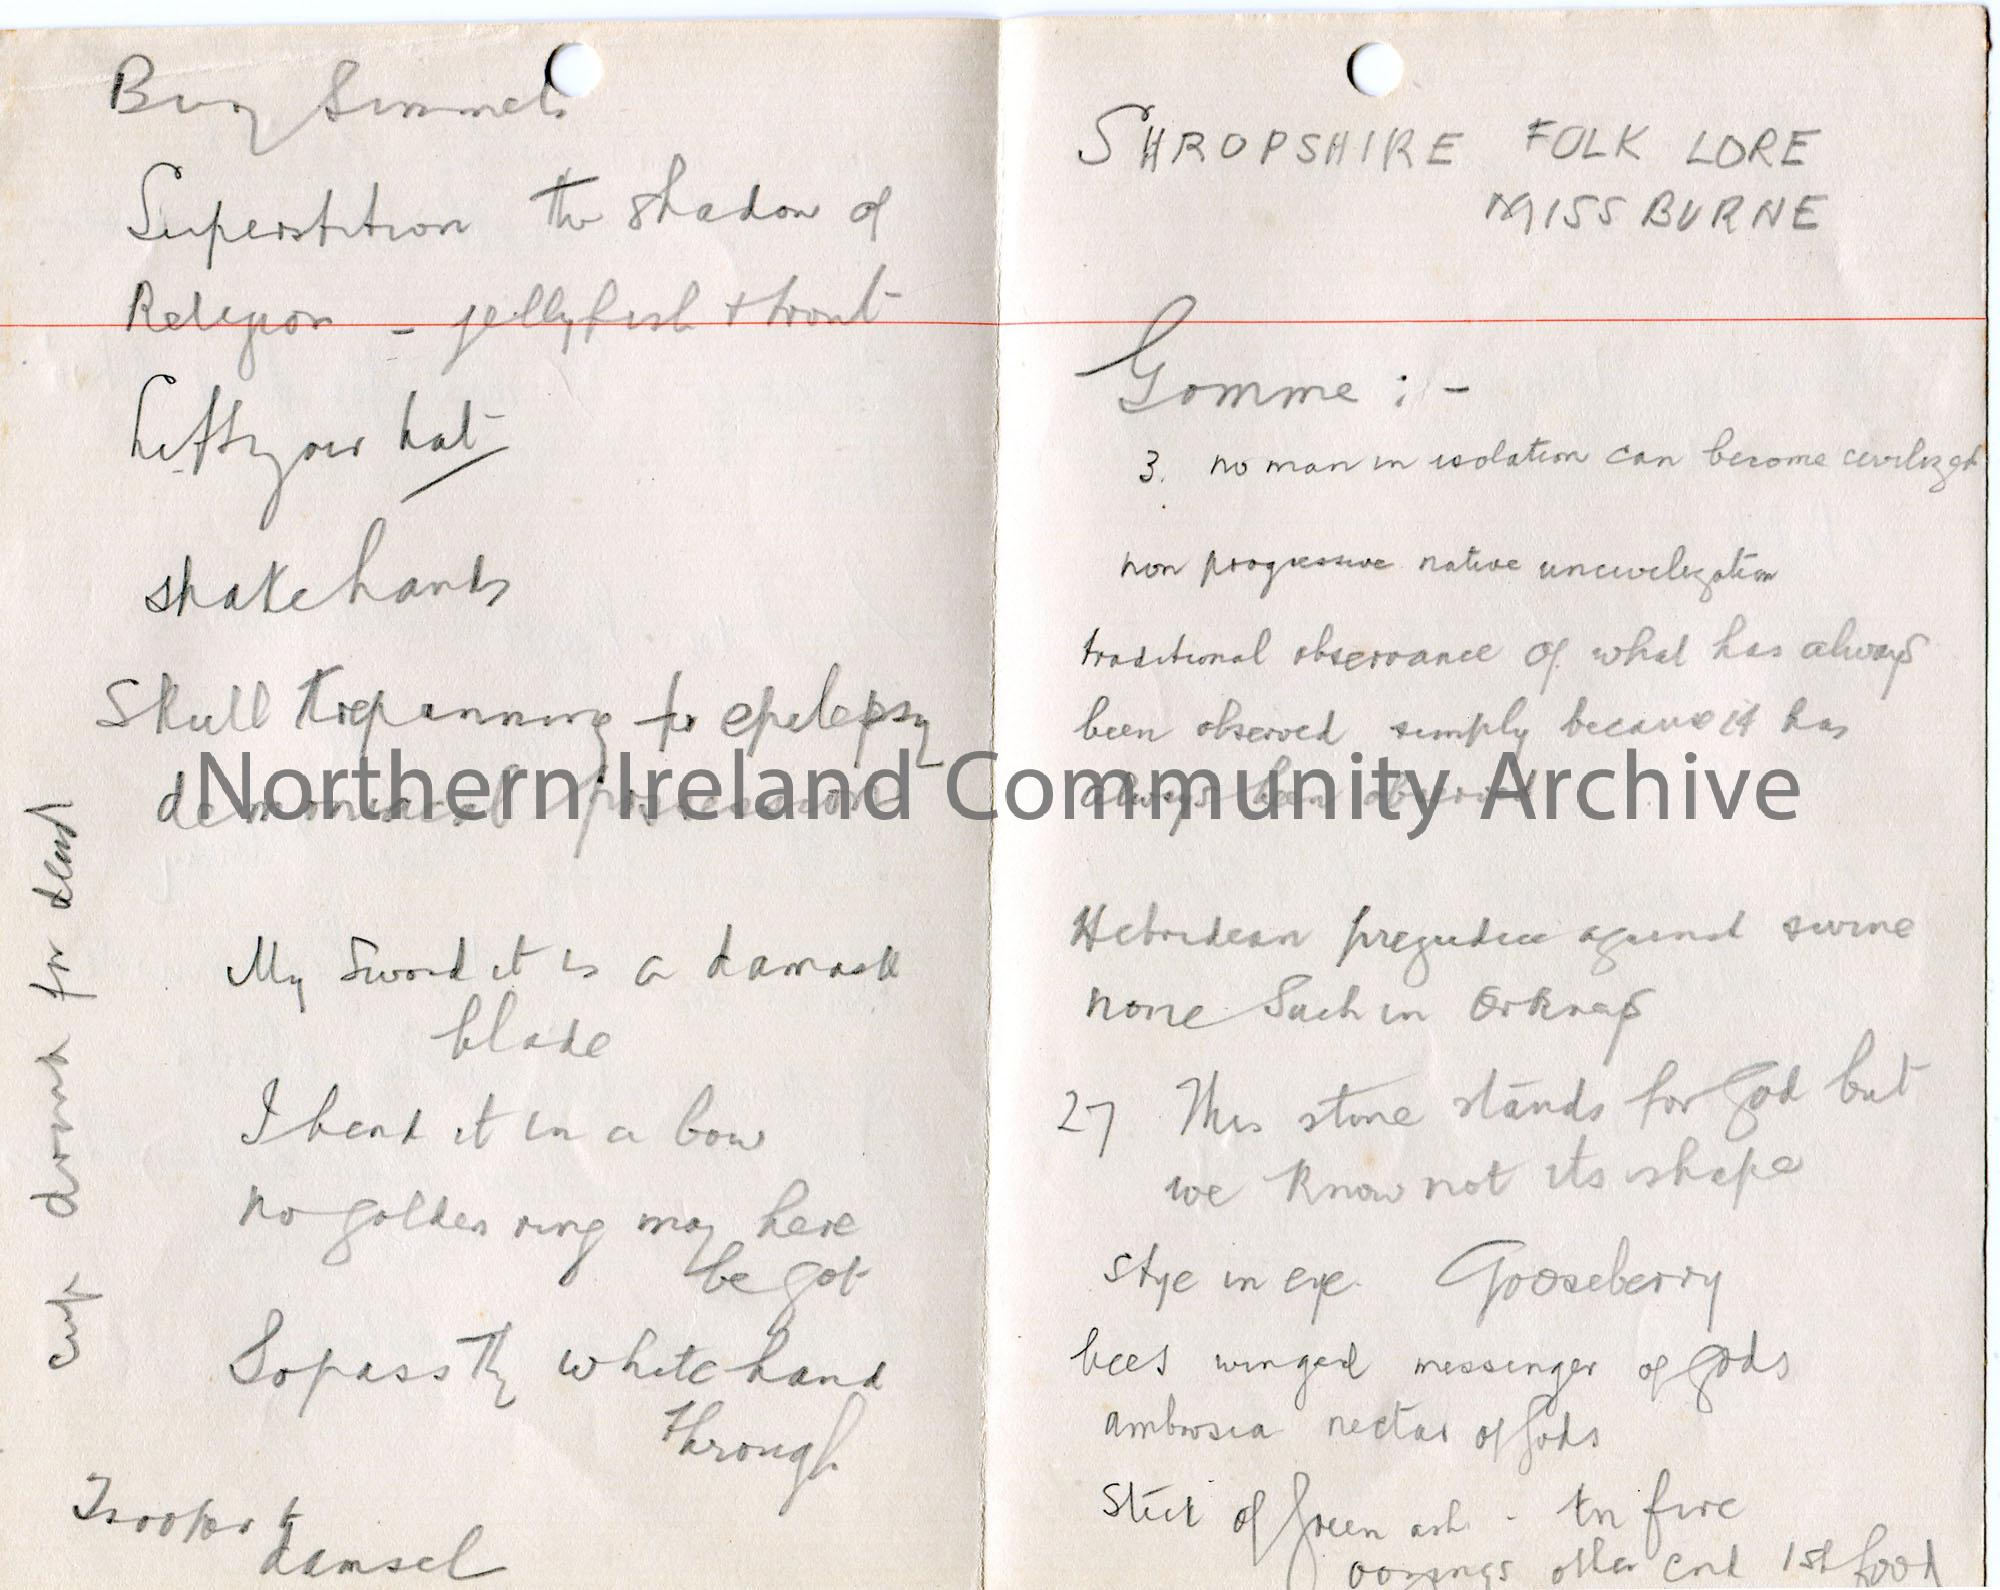 Bury Simnels
Superstition the shadow of
Religion – jellyfish + trout
Lift your hat
shake hands
Skull trepanning for epilepsy
demoniacal possession
My sword it is a damask
blade
I bend it in a bow
No golden ring may here
be got
So pass thy white hand
through
Trooper to
damsel
cup for dead
SHROPSHIRE FOLK LORE
MISS BURNE
Gomme :-
3. no man in isolation can become civilized
non progressive native uncivilization
traditional observance of what has always
been observed simply because it has
always been observed
Hebridean prejudice against swine
none such in Orkneys
27 This stone stands for God but
we know not its shape
Stye in eye. Gooseberry
bees winged messenger of gods
ambrosia nectar of Gods
Stick of green ash - in fire
oozings other end 1st food
Northern Ireland Community Archive